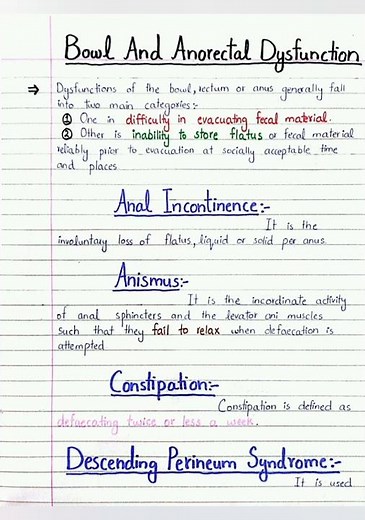 Bowl And Anorectal Dysfunction
⇒ Dysfunctions of the bowl, rectum or anus generally fall
into two main categories:-
① One in difficulty in evacuating fecal material.
② Other is inability to store flatus or fecal material
reliably prior to evacuation at socially acceptable time
and places
Anal Incontinence:-
It is the
involuntary loss of flatus, liquid or solid per anus
Anismus:-
It is the incordinate activity
of anal sphincters and the levator ani muscles
such that they fail to relax when defaecation is
attempted
Constipation:-
Constipation is defined as
defaecating twice or less a week.
Descending Perineum Syndrome:-
It is used